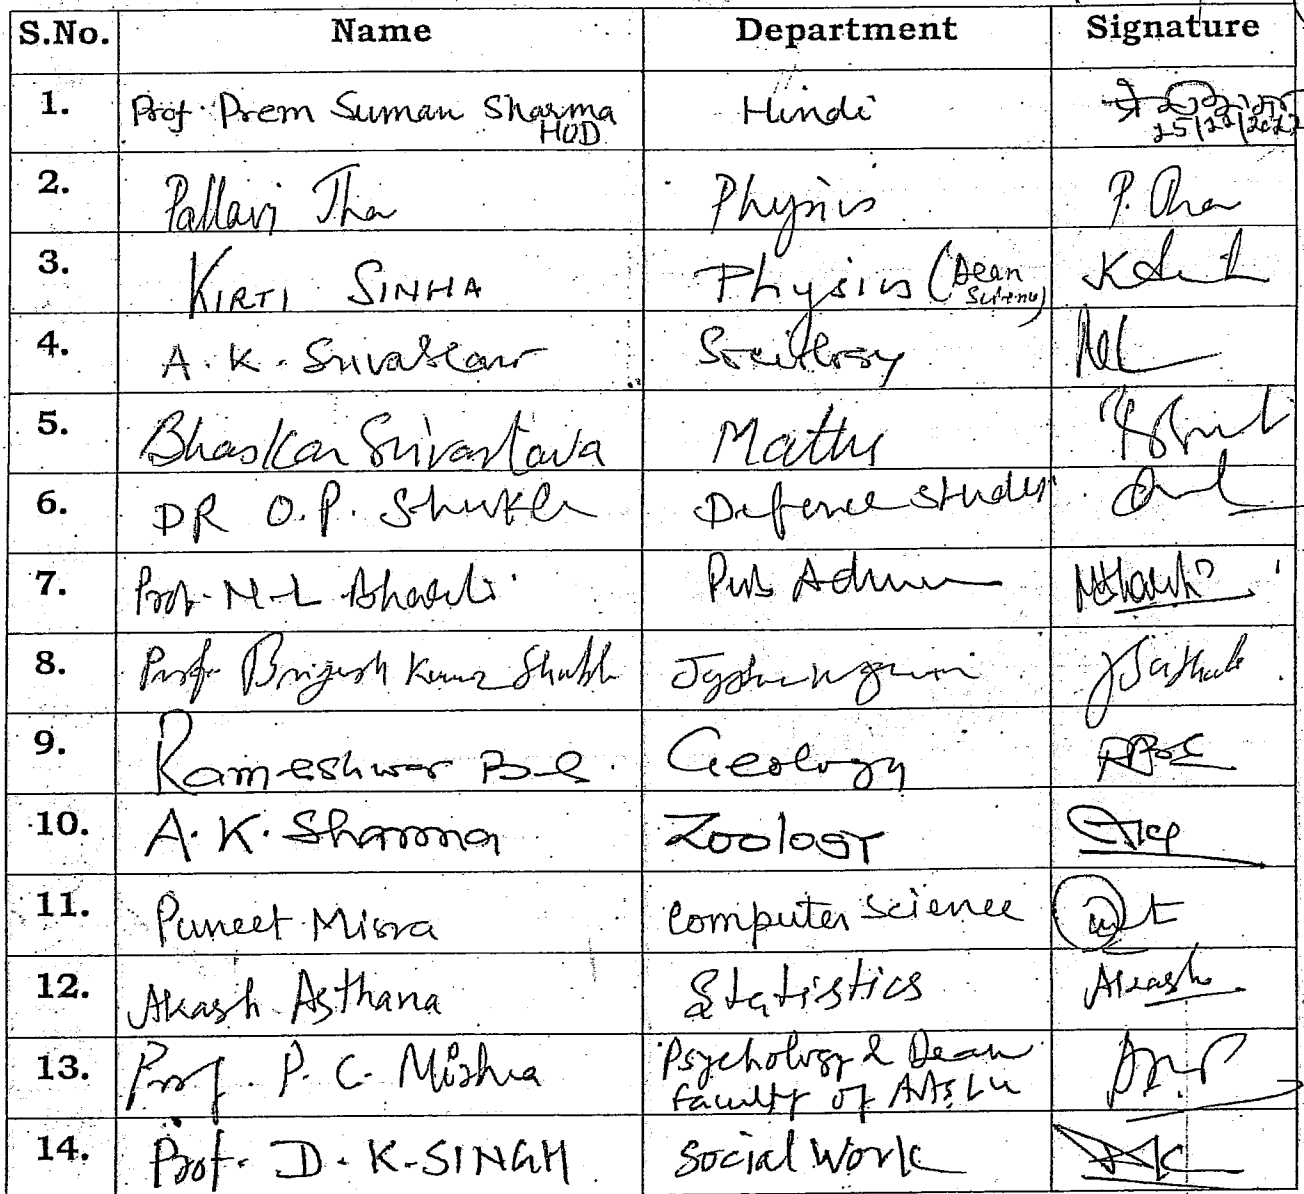 S.No. Name Department Signature
1. Prof. Prem Suman Sharma Hindi
HOD 25/22/2022
2. Pallavi Jha Physics P. Jha
3. KIRTI SINHA Physics (Dean
Science)
4. A. K. Srivastava Sociology
5. Bhaskar Srivastava Maths
6. DR O.P. Shukla Defence studies
7. Prof. N. L. Bharti Pub Admn
8. Prof. Brijesh Kumar Shukla
9. Rameshwar Bali Geology
10. A. K. Sharma Zoology
11. Puneet Misra Computer Science
12. Akash Asthana Statistics Akash
13. Prof. P. C. Mishra Psychology & Dean
Faculty of Arts, LU
14. Prof. D. K. SINGH Social Work